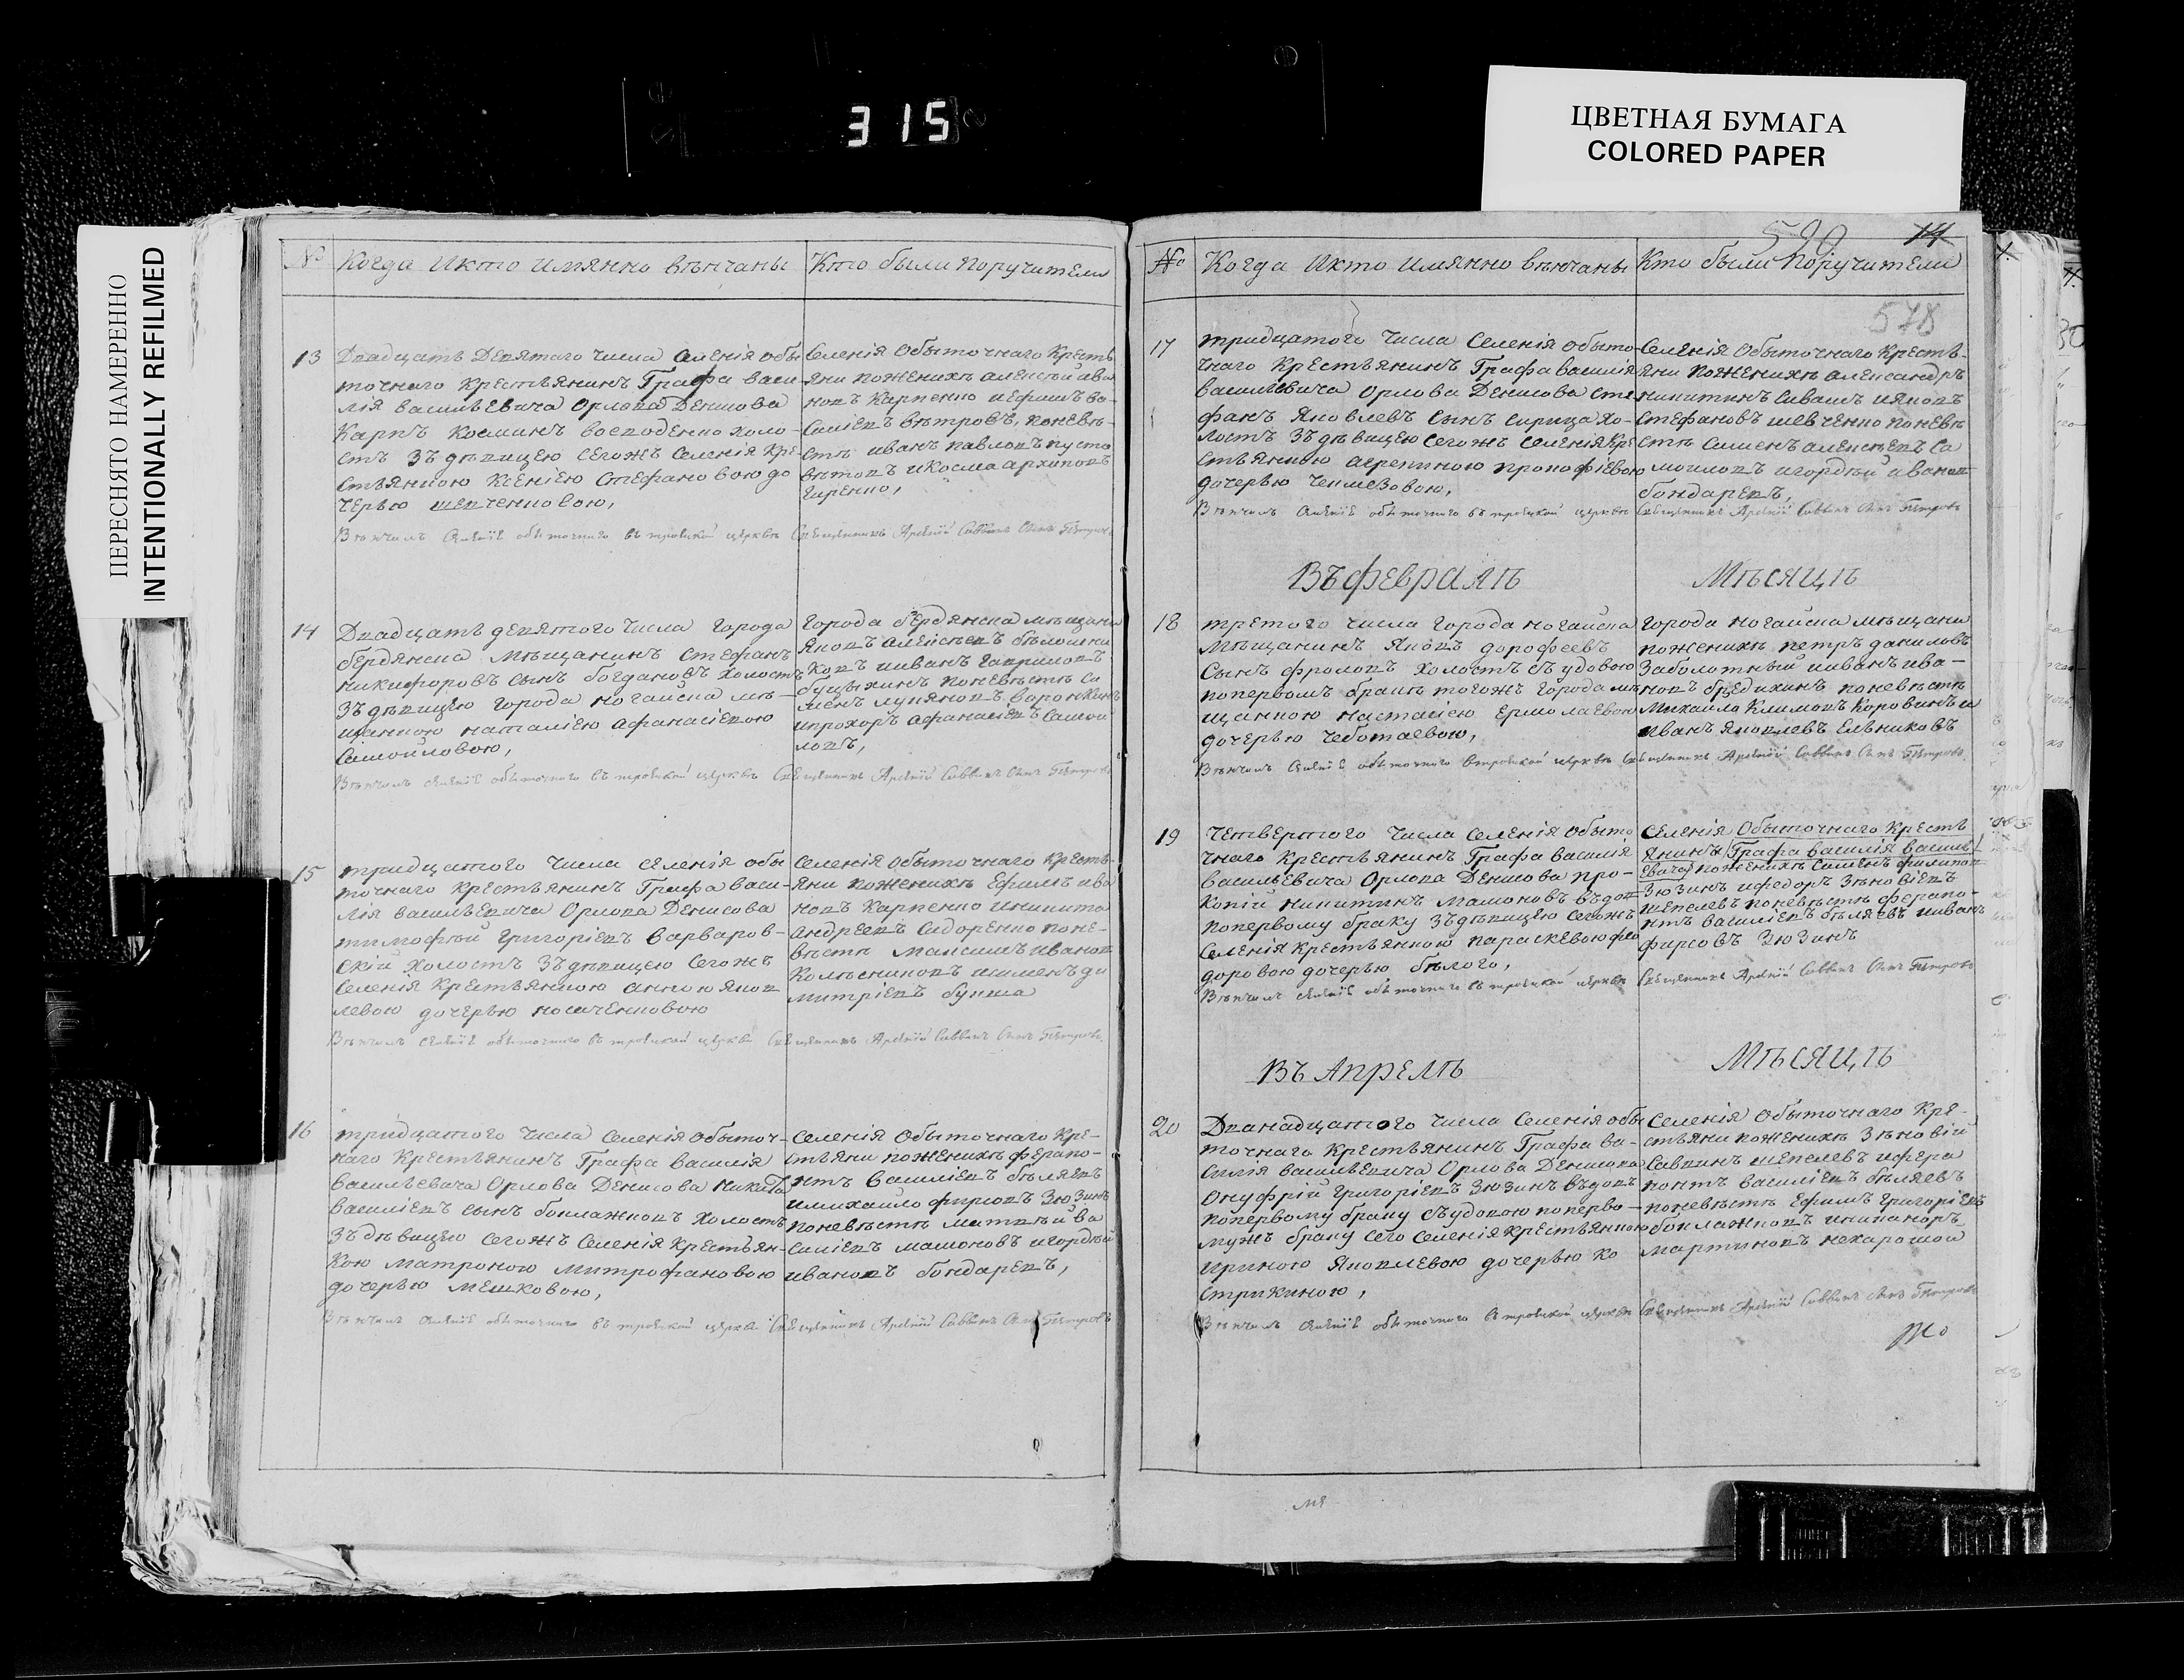 315
ЦВЕТНАЯ БУМАГА
COLORED PAPER
ПЕРЕСНЯТО НАМЕРЕННО
INTENTIONALLY REFILMED
№ Когда Икто Имянно вѣнчаны Кто были Поручители
13
Двадцать Девятаго Числа Селенія Обы
точнаго Крестьянинъ Графа Васи
лія Васильевича Орлова Денисова
Карпъ Косминъ холо-
стъ Зъ дѣвицею Сегожъ Селенія Кре
стьянкою Ксеніею Стефановою до
черью шевченковою,
Селенія Обыточнаго Кресть
яни поженихѣ алексѣй ива
новъ Карпенко иефимъ ва-
силіевъ вѣтровъ, поневѣ-
стѣ иванъ павловъ пусто
вѣтовъ икосма архиповъ
гиренко,
Вѣнчалъ Селеніе обыточнаго въ троецкой церкви Священникъ Арсеній Саввинъ Сынъ Петровъ
14
Двадцать девятого Числа Города
бердянска Мѣщанинъ Стефанъ
никифоровъ сынъ богдановъ холостъ
Зъ дѣвицею Города Ногайска мѣ-
щанкою наталіею афанасіевою
Самойловою,
Города бердянска мѣщани
Яковъ алексѣевъ
иванъ гавриловъ
поневѣстѣ се
менъ лукяновъ воронкинъ
ипрохоръ афанасіевъ самой
ловъ,
Вѣнчалъ Селеніе обыточнаго въ троецкой церкви Священникъ Арсеній Саввинъ Сынъ Петровъ
15
тридцатого Числа Селенія обы
точнаго Крестьянинъ Графа Васи-
лія Васильевича Орлова Денисова
тимофѣй григоріевъ варваров-
скій холостъ Зъ дѣвицею Сегожъ
Селенія Крестьянкою анною яков
левою дочерью носаченковою
Селенія Обыточнаго Кресть-
яни поженихѣ Ефимъ ива
новъ Карпенко иникита
андреевъ Сидоренко поне-
вѣстѣ максимъ иванов
Колѣсниковъ исименъ ди
митріевъ букша
Вѣнчалъ Селеніе обыточнаго въ троецкой церкви Священникъ Арсеній Саввинъ Сынъ Петровъ
16
тридцатого Числа Селенія обыточ-
наго Крестьянинъ Графа Василія
Васильевича Орлова Денисова Никита
Василіевъ сынъ боклажковъ холостъ
Зъ дѣвицею Сегожъ Селенія Крестьян-
кою матроною митрофановою
дочерью Мешковою,
Селенія Обыточнаго Кре-
стьяни поженихѣ ферапо-
нтъ василіевъ бѣляевъ
имихайло фирсовъ Зюзинъ
поневѣстѣ матвѣй ва
силіевъ мамоновъ игордѣй
ивановъ бондаревъ,
Вѣнчалъ Селеніе обыточнаго въ троецкой церкви Священникъ Арсеній Саввинъ Сынъ Петровъ
590 14
№ Когда Икто Имянно вѣнчаны Кто были Поручители
578
17
тридцатого Числа Селенія обыто-
чнаго Крестьянинъ Графа Василія
Васильевича Орлова Денисова Сте
фанъ Яковлевъ сынъ сирица хо-
лостъ Зъ дѣвицею Сегожъ Селенія Кре
стьянкою агрепиною прокофіевою
дочерью Чепмезовою,
Селенія Обыточнаго Кресть-
яни поженихѣ александръ
никитинъ Сивашъ ияковъ
Стефановъ шевченко поневѣ
стѣ Сименъ алексѣевъ са
моиловъ игордѣй иванов
бондаревъ,
Вѣнчалъ Селеніе обыточнаго въ троецкой церкви Священникъ Арсеній Саввинъ Сынъ Петровъ
Въ февралѣ Мѣсяцѣ
18
третого Числа Города ногайска
Мѣщанинъ Яковъ дорофеевъ
Сынъ фроловъ холостъ съ удовою
попервомъ бракѣ тогожъ города мѣ
щанкою настасіею Ермолаевою
дочерью Чеботаевою,
Города ногайска мѣщани
поженихѣ петръ даниловъ
Заболотный ииванъ ива-
новъ бредихинъ поневѣстѣ
Михайло Климовъ Коровинъ и
иванъ Яковлевъ Ельниковъ
Вѣнчалъ Селеніе обыточнаго втроецкой церкви Священникъ Арсеній Саввинъ Сынъ Петровъ
19
Четвертого Числа Селенія обыто
чнаго Крестьянинъ Графа Василія
Васильевича Орлова Денисова про-
копій никитинъ Мамоновъ вѣдов
попервому браку Зъ дѣвицею Сегожъ
Селенія Крестьянкою параскевою фео
доровою дочерью бѣлого,
Селенія Обыточнаго Кресть
янинъ Графа Василія Василь-
евича поженихѣ Сименъ филипов
Зюзинъ ифедоръ Зѣновіевъ
шепелевъ поневѣстѣ ферапо-
нтъ василіевъ бѣляевъ ииванъ
фирсовъ Зюзинъ
Вѣнчалъ Селеніе обыточнаго въ троецкой церкви Священникъ Арсеній Саввинъ Сынъ Петровъ
Въ Апрелѣ Мѣсяцѣ
20
Двенадцатого Числа Селенія обы
точнаго Крестьянинъ Графа Ва-
силія Васильевича Орлова Денисова
Онуфрій григоріевъ Зюзинъ вѣдовъ
попервому браку съ удовою поперво-
мужъ браку сего Селенія Крестьянкою
ириною Яковлевою дочерью ко
стрикиною,
Селенія Обыточнаго Кре-
стьяни поженихѣ Зѣновій
Савкинъ шепелевъ ифера
понтъ василіевъ бѣляевъ
поневѣстѣ Ефимъ григоріевъ
боклажковъ иниканоръ
мартиновъ нехарошой
Вѣнчалъ Селеніе обыточнаго втроецкой церкви Священникъ Арсеній Саввинъ Сынъ Петровъ